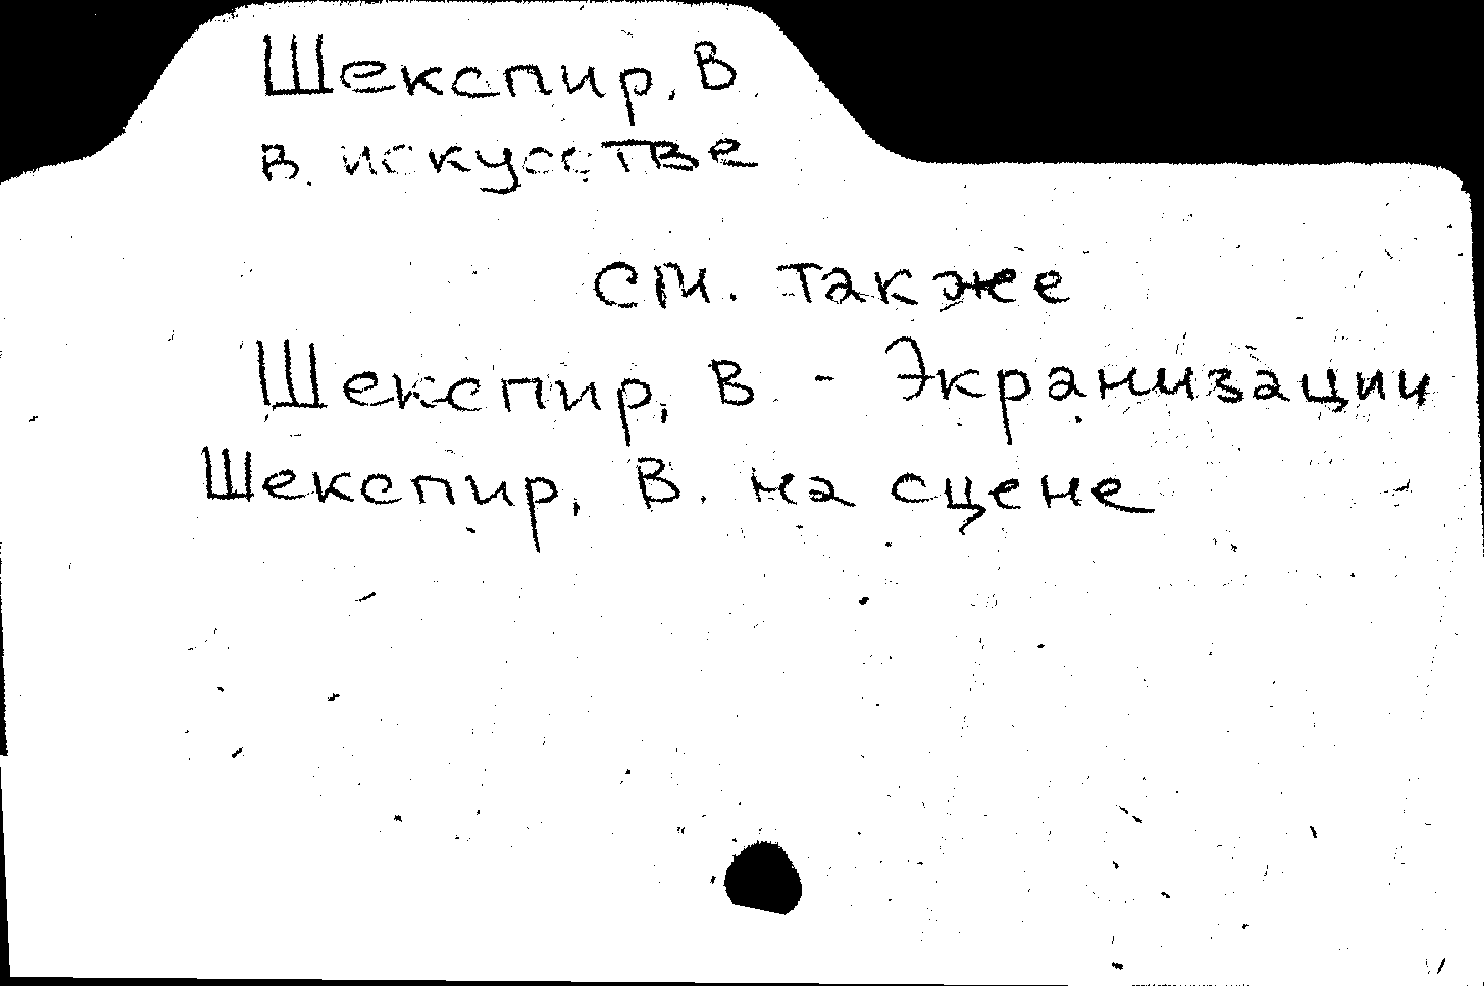 Шекспир, В.
в искусстве
см. также
Шекспир, В - Экранизации
Шекспир, В. на сцене